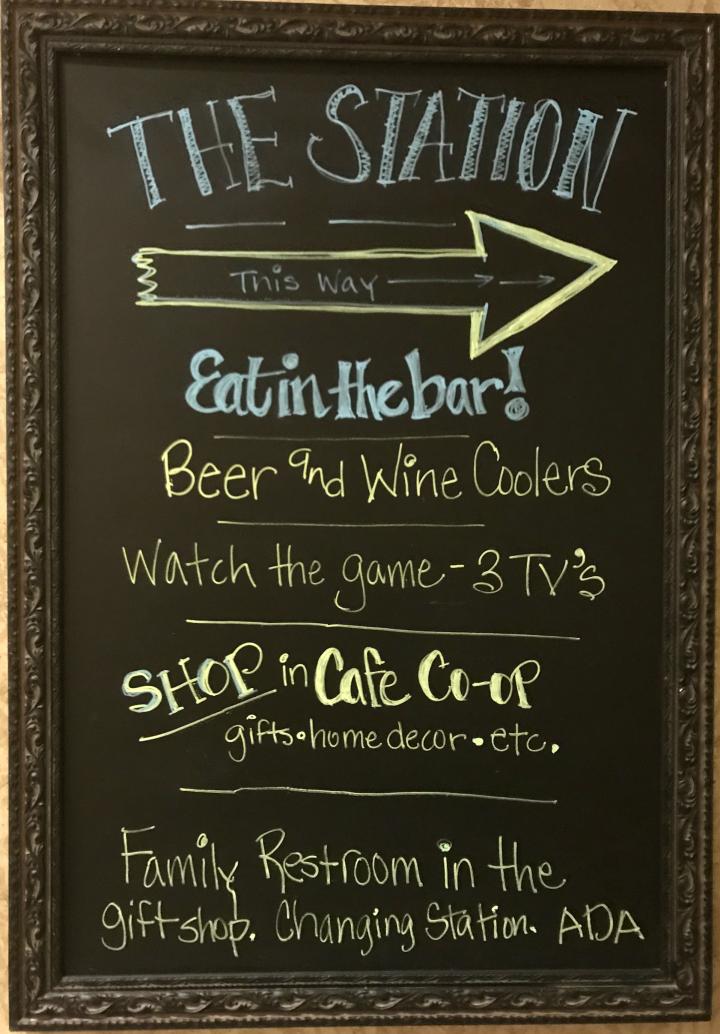 THE STATION
This Way
Eat in the bar!
Beer and Wine Coolers
Watch the game - 3 TV's
SHOP in Cafe Co-op
gifts • home decor • etc.
Family Restroom in the
giftshop. Changing Station. ADA